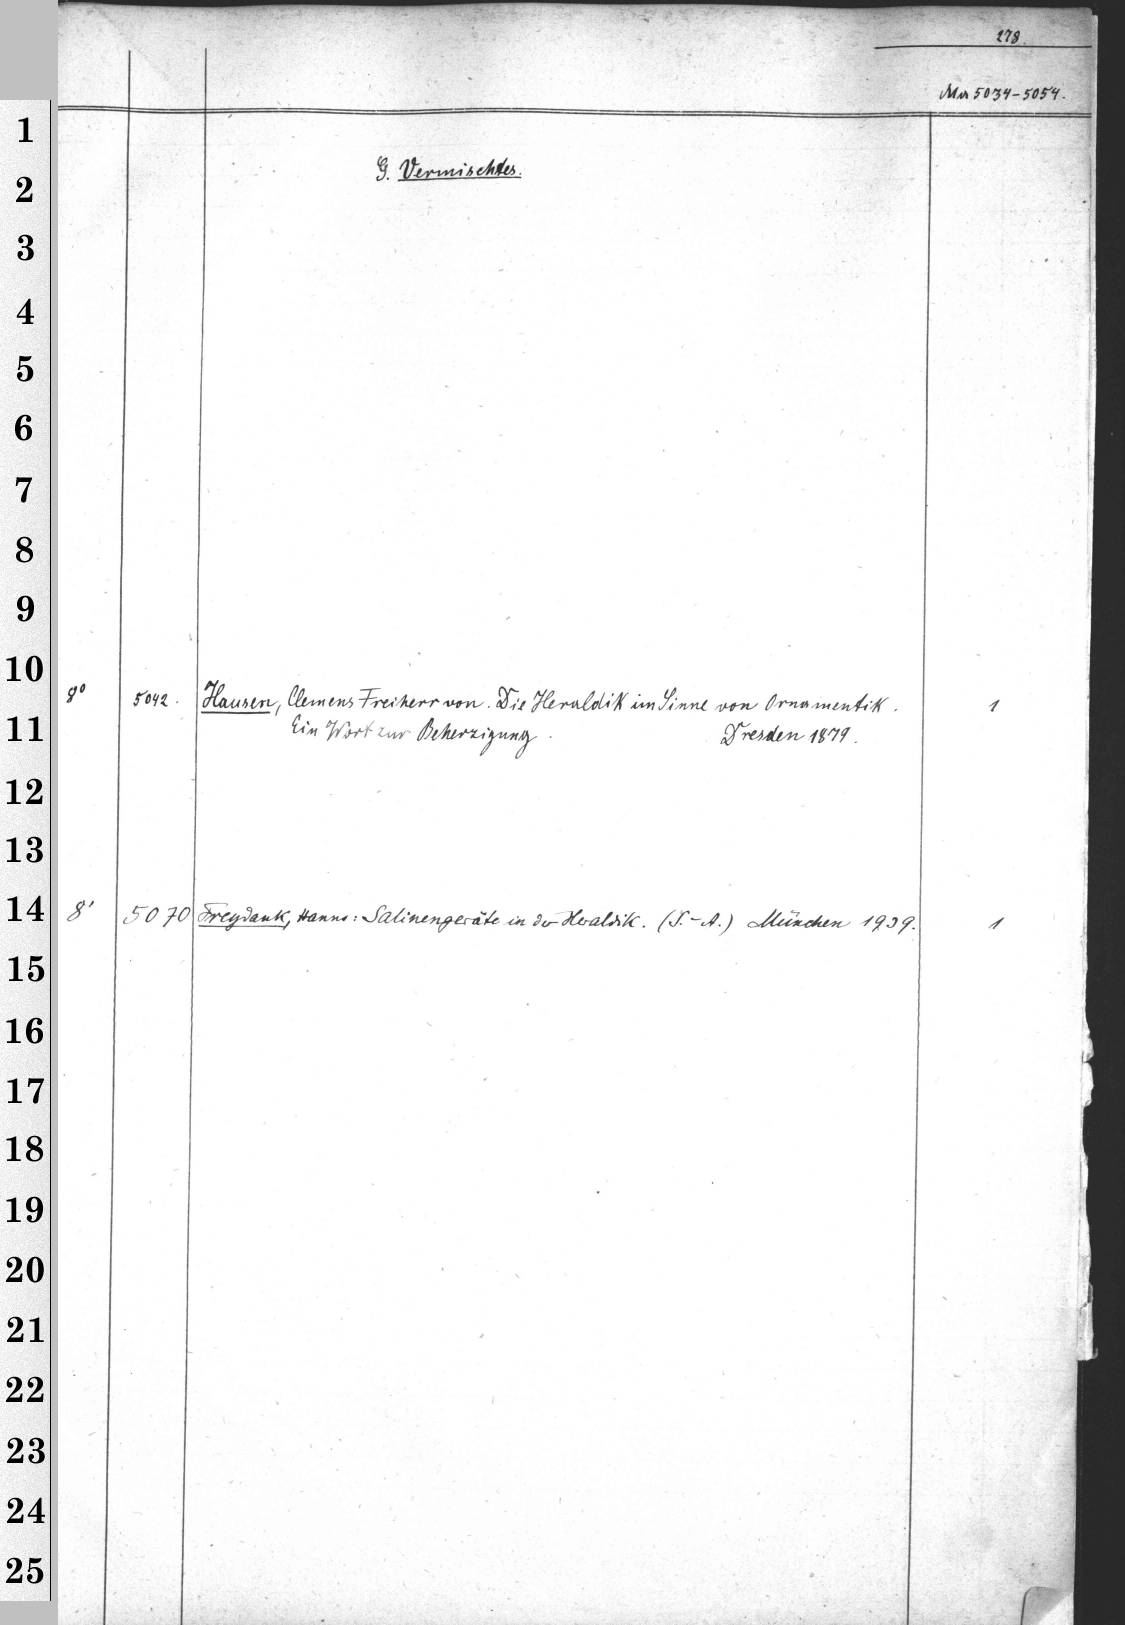 278.
Ma 5034-5054.
1
G. Vermischtes.
2
3
4
5
6
7
8
9
10
8° 5042. Hausen, Clemens Freiherr von. Die Heraldik im Sinne von Ornamentik. 1
11 Ein Wort zur Beherzigung. Dresden 1879.
12
13
14 8' 5070 Freydank, Hanns: Salinengeräte in der Heraldik. (S.-A.) München 1939. 1
15
16
17
18
19
20
21
22
23
24
25